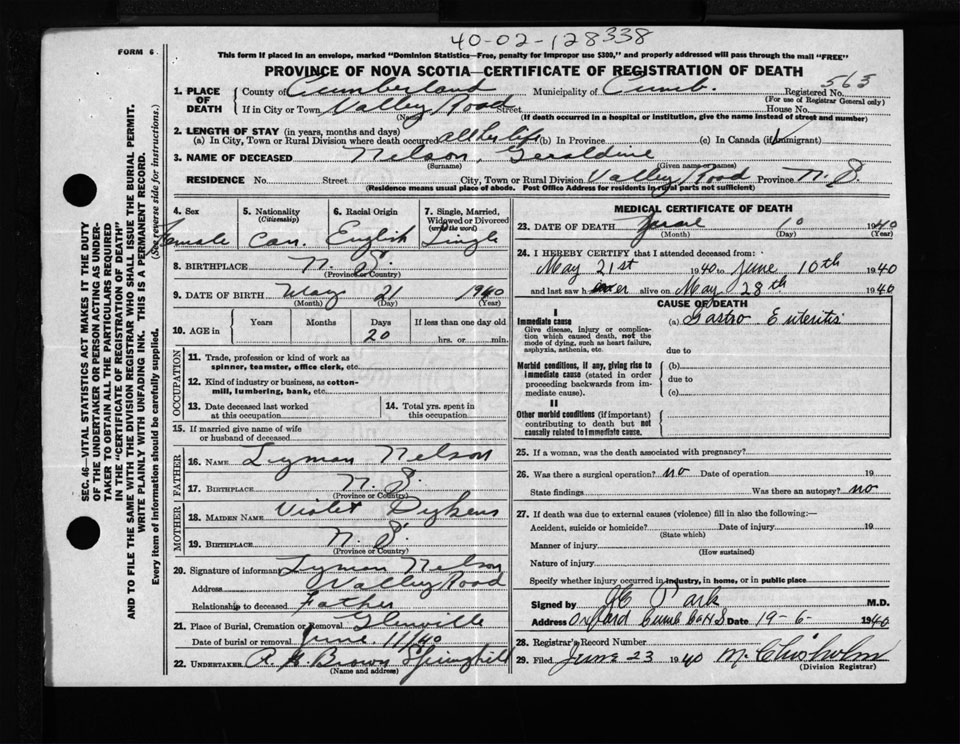 40-02-128338
FORM 6.
This form if placed in an envelope, marked "Dominion Statistics—Free, penalty for improper use $300," and properly addressed will pass through the mail "FREE"
PROVINCE OF NOVA SCOTIA—CERTIFICATE OF REGISTRATION OF DEATH
SEC. 46—VITAL STATISTICS ACT MAKES IT THE DUTY
OF THE UNDERTAKER OR PERSON ACTING AS UNDER-
TAKER TO OBTAIN ALL THE PARTICULARS REQUIRED
IN THE "CERTIFICATE OF REGISTRATION OF DEATH"
AND TO FILE THE SAME WITH THE DIVISION REGISTRAR WHO SHALL ISSUE THE BURIAL PERMIT.
WRITE PLAINLY WITH UNFADING INK. THIS IS A PERMANENT RECORD.
Every item of information should be carefully supplied. (See reverse side for instructions.)
1. PLACE OF DEATH
County of Cumberland Municipality of Cumb. Registered No. 563
(For use of Registrar General only)
If in City or Town Valley Road Street House No.
(Name) (If death occurred in a hospital or institution, give the name instead of street and number)
2. LENGTH OF STAY (in years, months and days)
(a) In City, Town or Rural Division where death occurred all her life (b) In Province (c) In Canada (if immigrant)
3. NAME OF DECEASED Nelson, Geraldine
(Surname) (Given name or names)
RESIDENCE No. Street City, Town or Rural Division Valley Road Province N.S.
(Residence means usual place of abode. Post Office Address for residents in rural parts not sufficient)
4. Sex Female
5. Nationality (Citizenship) Can.
6. Racial Origin English
7. Single, Married, Widowed or Divorced (write the word) Single
8. BIRTHPLACE N.S.
(Province or Country)
9. DATE OF BIRTH May 21 1940
(Month) (Day) (Year)
10. AGE in Years Months Days 20 If less than one day old hrs. or min.
OCCUPATION
11. Trade, profession or kind of work as
spinner, teamster, office clerk, etc.
12. Kind of industry or business, as cotton-
mill, lumbering, bank, etc.
13. Date deceased last worked
at this occupation
14. Total yrs. spent in
this occupation
15. If married give name of wife
or husband of deceased
FATHER
16. NAME Lyman Nelson
17. BIRTHPLACE N.S.
(Province or Country)
MOTHER
18. MAIDEN NAME Violet Dykens
19. BIRTHPLACE N.S.
(Province or Country)
20. Signature of informant Lyman Nelson
Address Valley Road
Relationship to deceased Father
21. Place of Burial, Cremation or Removal Glenville
Date of burial or removal June 11/40
22. UNDERTAKER Brown Springhill
(Name and address)
MEDICAL CERTIFICATE OF DEATH
23. DATE OF DEATH June 10 1940
(Month) (Day) (Year)
24. I HEREBY CERTIFY that I attended deceased from:
May 21st 1940 to June 10th 1940
and last saw her alive on May 28th 1940
CAUSE OF DEATH
I
Immediate cause
Give disease, injury or complica-
tion which caused death, not the
mode of dying, such as heart failure,
asphyxia, asthenia, etc.
(a) Gastro Enteritis
due to
Morbid conditions, if any, giving rise to
immediate cause (stated in order
proceeding backwards from im-
mediate cause).
(b)
due to
(c)
II
Other morbid conditions (if important)
contributing to death but not
causally related to immediate cause.
25. If a woman, was the death associated with pregnancy?
26. Was there a surgical operation? no Date of operation 19
State findings Was there an autopsy? no
27. If death was due to external causes (violence) fill in also the following:—
Accident, suicide or homicide? Date of injury 19
(State which)
Manner of injury
(How sustained)
Nature of injury
Specify whether injury occurred in industry, in home, or in public place
Signed by Park M.D.
Address Oxford Cumb Co N.S Date 19-6- 1940
28. Registrar's Record Number
29. Filed June 23 1940 M. Chisholm
(Division Registrar)